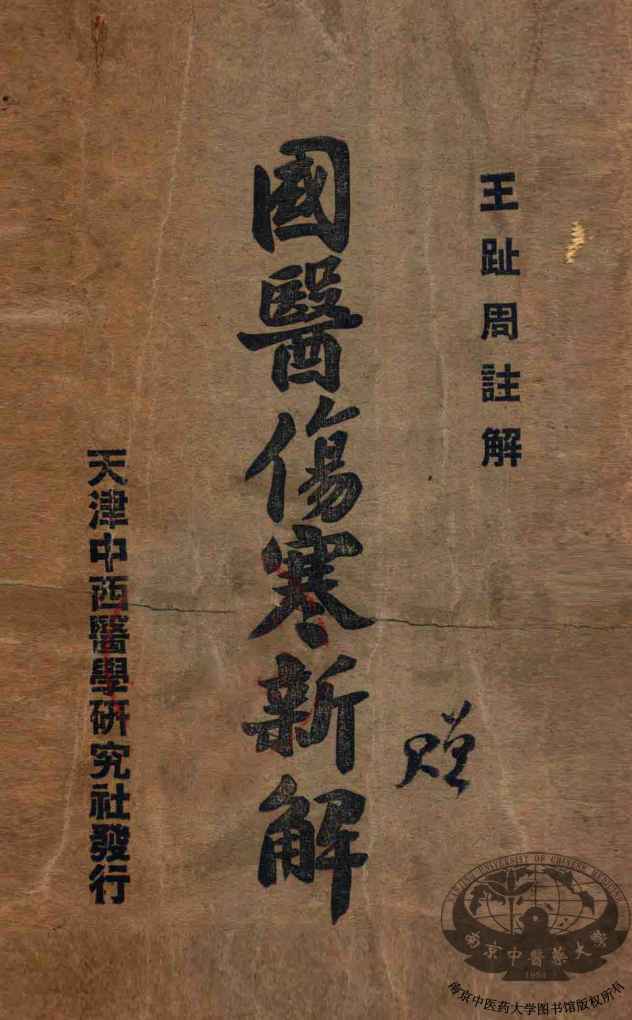 王趾周註解
國醫傷寒新解
贈
天津中西醫學研究社發行
NANJING UNIVERSITY OF CHINESE MEDICINE
南京中醫藥大學
1954
南京中医药大学图书馆版权所有